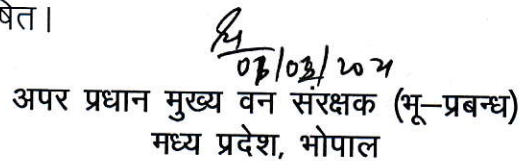 षित।
03/03/2021
अपर प्रधान मुख्य वन संरक्षक (भू–प्रबन्ध)
मध्य प्रदेश, भोपाल